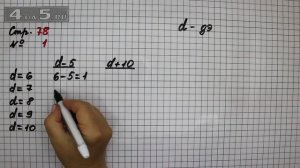 4-05.ru
Стр. 78
№ 1
d - дэ
d-5 d+10
d=6 6-5=1
d=7
d=8
d=9
d=10